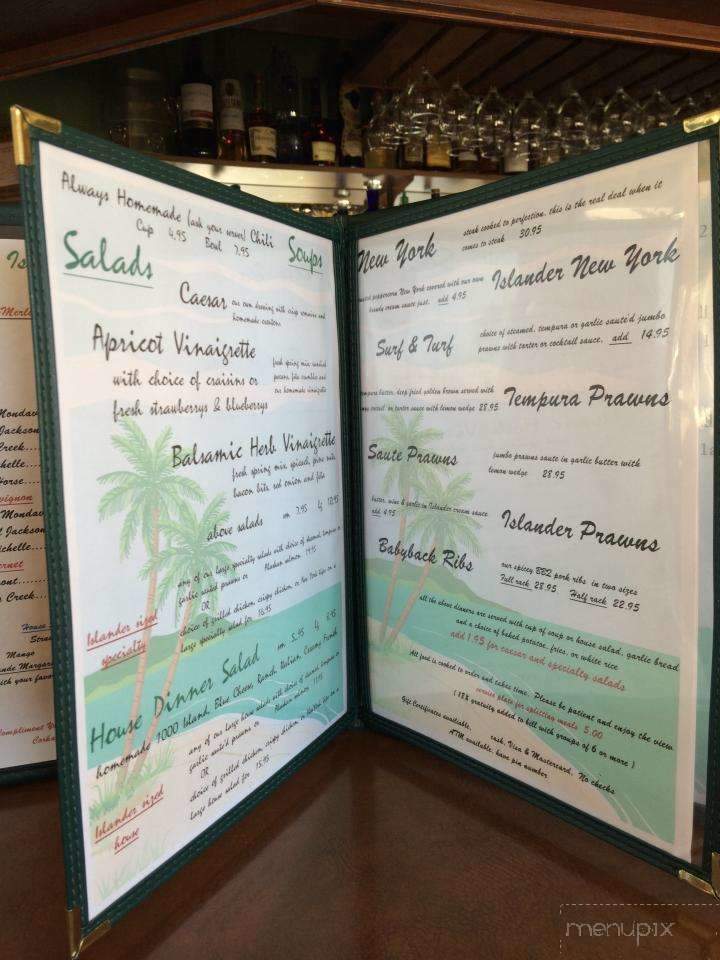 Always Homemade (ask your server) Chili
Cup 4.95 Bowl 7.95
Salads
Soups
Caesar our own dressing with crisp romaine and
homemade croutons
Apricot Vinaigrette
with choice of craisins or
fresh strawberrys & blueberrys
fresh spring mix, candied
pecans, feta crumbles and
our homemade vinaigrette
Balsamic Herb Vinaigrette
fresh spring mix, spinach, pine nuts,
bacon bits, red onion and feta
above salads sm 7.95 lg 12.95
Islander sized
specialty
any of our large specialty salads with choice of steamed, tempura or
garlic sauted prawns or Alaskan salmon 19.95
OR
choice of grilled chicken, crispy chicken, or New York tips on a
large specialty salad for 16.95
House Dinner Salad sm 5.95 lg 8.95
homemade 1000 Island, Blue Cheese, Ranch, Italian, Creamy French
Islander sized
house
any of our large house salads with choice of steamed, tempura or
garlic saute'd prawns or
OR
choice of grilled chicken, crispy chicken, or
large house salad for 15.95
New York
steak cooked to perfection, this is the real deal when it
comes to steak 30.95
Islander New York
peppercorn New York covered with our own
brandy cream sauce just, add 4.95
Surf & Turf
choice of steamed, tempura or garlic saute'd jumbo
prawns with tarter or cocktail sauce, add 14.95
Tempura Prawns
tempura batter, deep fried golden brown served with
or tarter sauce with lemon wedge 28.95
Saute Prawns
jumbo prawns saute in garlic butter with
lemon wedge 28.95
Islander Prawns
butter, wine & garlic in Islander cream sauce
add 4.95
Babyback Ribs
our spicy BBQ pork ribs in two sizes
Full rack 28.95 Half rack 22.95
all the above dinners are served with cup of soup or house salad, garlic bread
and a choice of baked potatoe, fries, or white rice
add 1.95 for caesar and specialty salads
All food is cooked to order and takes time. Please be patient and enjoy the view
service plate for splitting meals 5.00
( 18% gratuity added to bill with groups of 6 or more )
Gift Certificates available, cash, Visa & Mastercard, No checks
ATM available, have pin number
Mondav
Jackson
Creek...
Horse...
Monda
Jackson
Creek..
House
Mango
menupix